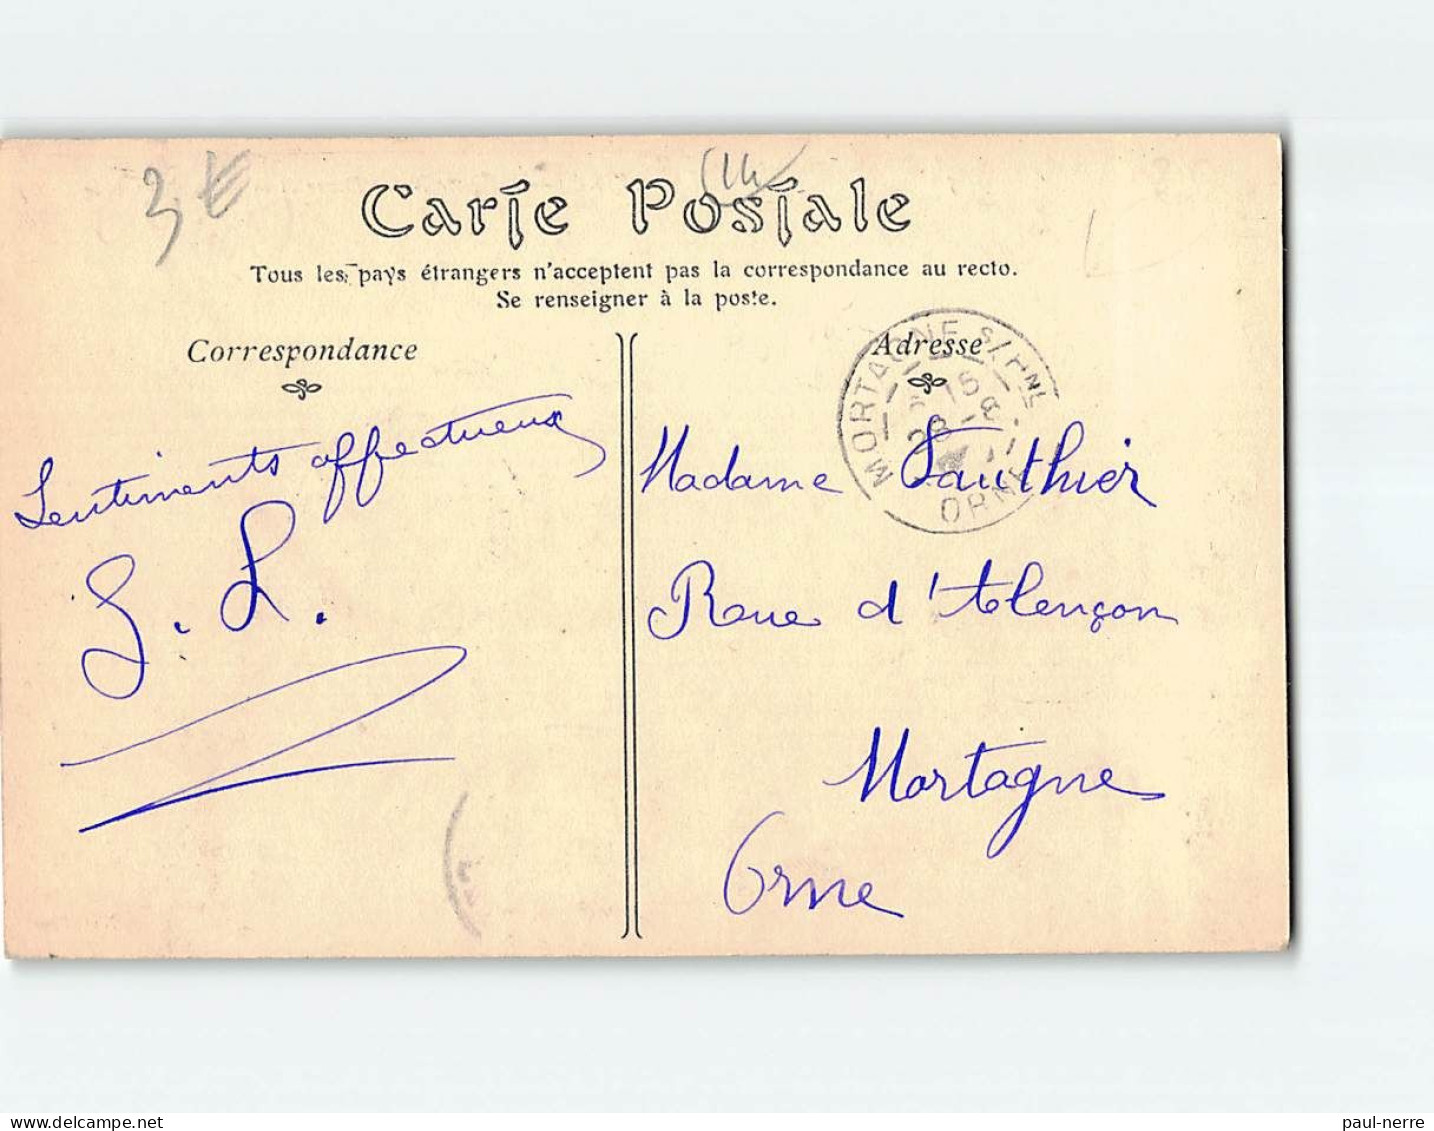 3 €
14
Carte Postale
Tous les pays étrangers n'acceptent pas la correspondance au recto.
Se renseigner à la poste.
Correspondance
Adresse
MORTAGNE S/
15
28 -8
ORNE
Sentiments affectueux
G. L.
Madame Gauthier
Rue d'Alençon
Mortagne
Orne
paul-nerre